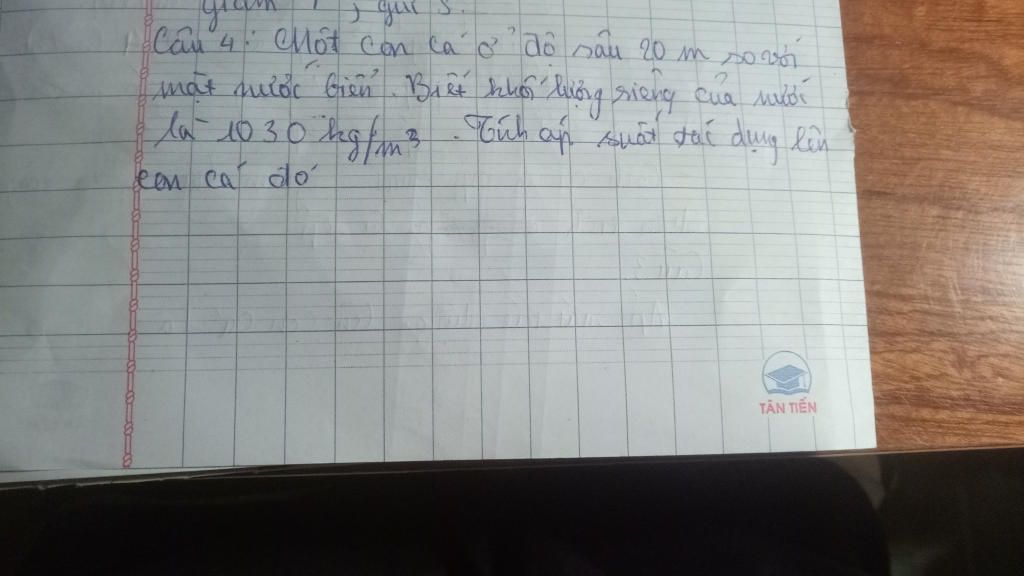 giảm 1, gửi s.
Câu 4: Một con cá ở độ sâu 20 m so với
mặt nước biển. Biết khối lượng riêng của nước
là 1030 kg/m³. Tích áp suất tác dụng lên
con cá đó
TÂN TIẾN